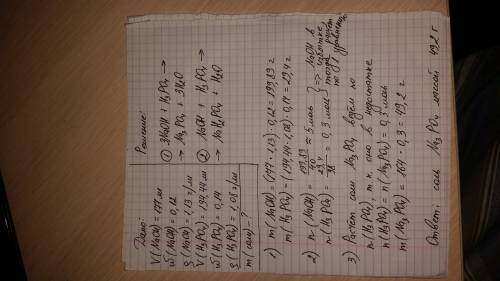 Дано:
V(NaOH) = 177 мл
ω(NaOH) = 0,12
ρ(NaOH) = 1,13 г/мл
V(H₃PO₄) = 194,44 мл
ω(H₃PO₄) = 0,14
ρ(H₃PO₄) = 1,08 г/мл
m(соли) = ?
Решение:
① 3NaOH + H₃PO₄ →
→ Na₃PO₄ + 3H₂O
② NaOH + H₃PO₄ →
→ NaH₂PO₄ + H₂O
1) m(NaOH) = (177 · 1,13) · 0,12 =
m(H₃PO₄) = (194,44 · 1,08) · 0,14 = 29,4 г
2) n(NaOH) = = 5 моль
n(H₃PO₄) = 29,4/98 = 0,3 моль
} => NaOH в избытке, тогда расчёт по 1 уравнению
3) Расчёт соли Na₃PO₄ ведём по
n(H₃PO₄), т.к. оно в недостатке
n(H₃PO₄) = n(Na₃PO₄) = 0,3 моль
m(Na₃PO₄) = 164 · 0,3 = 49,2 г
Ответ: соль Na₃PO₄ массой 49,2 г.